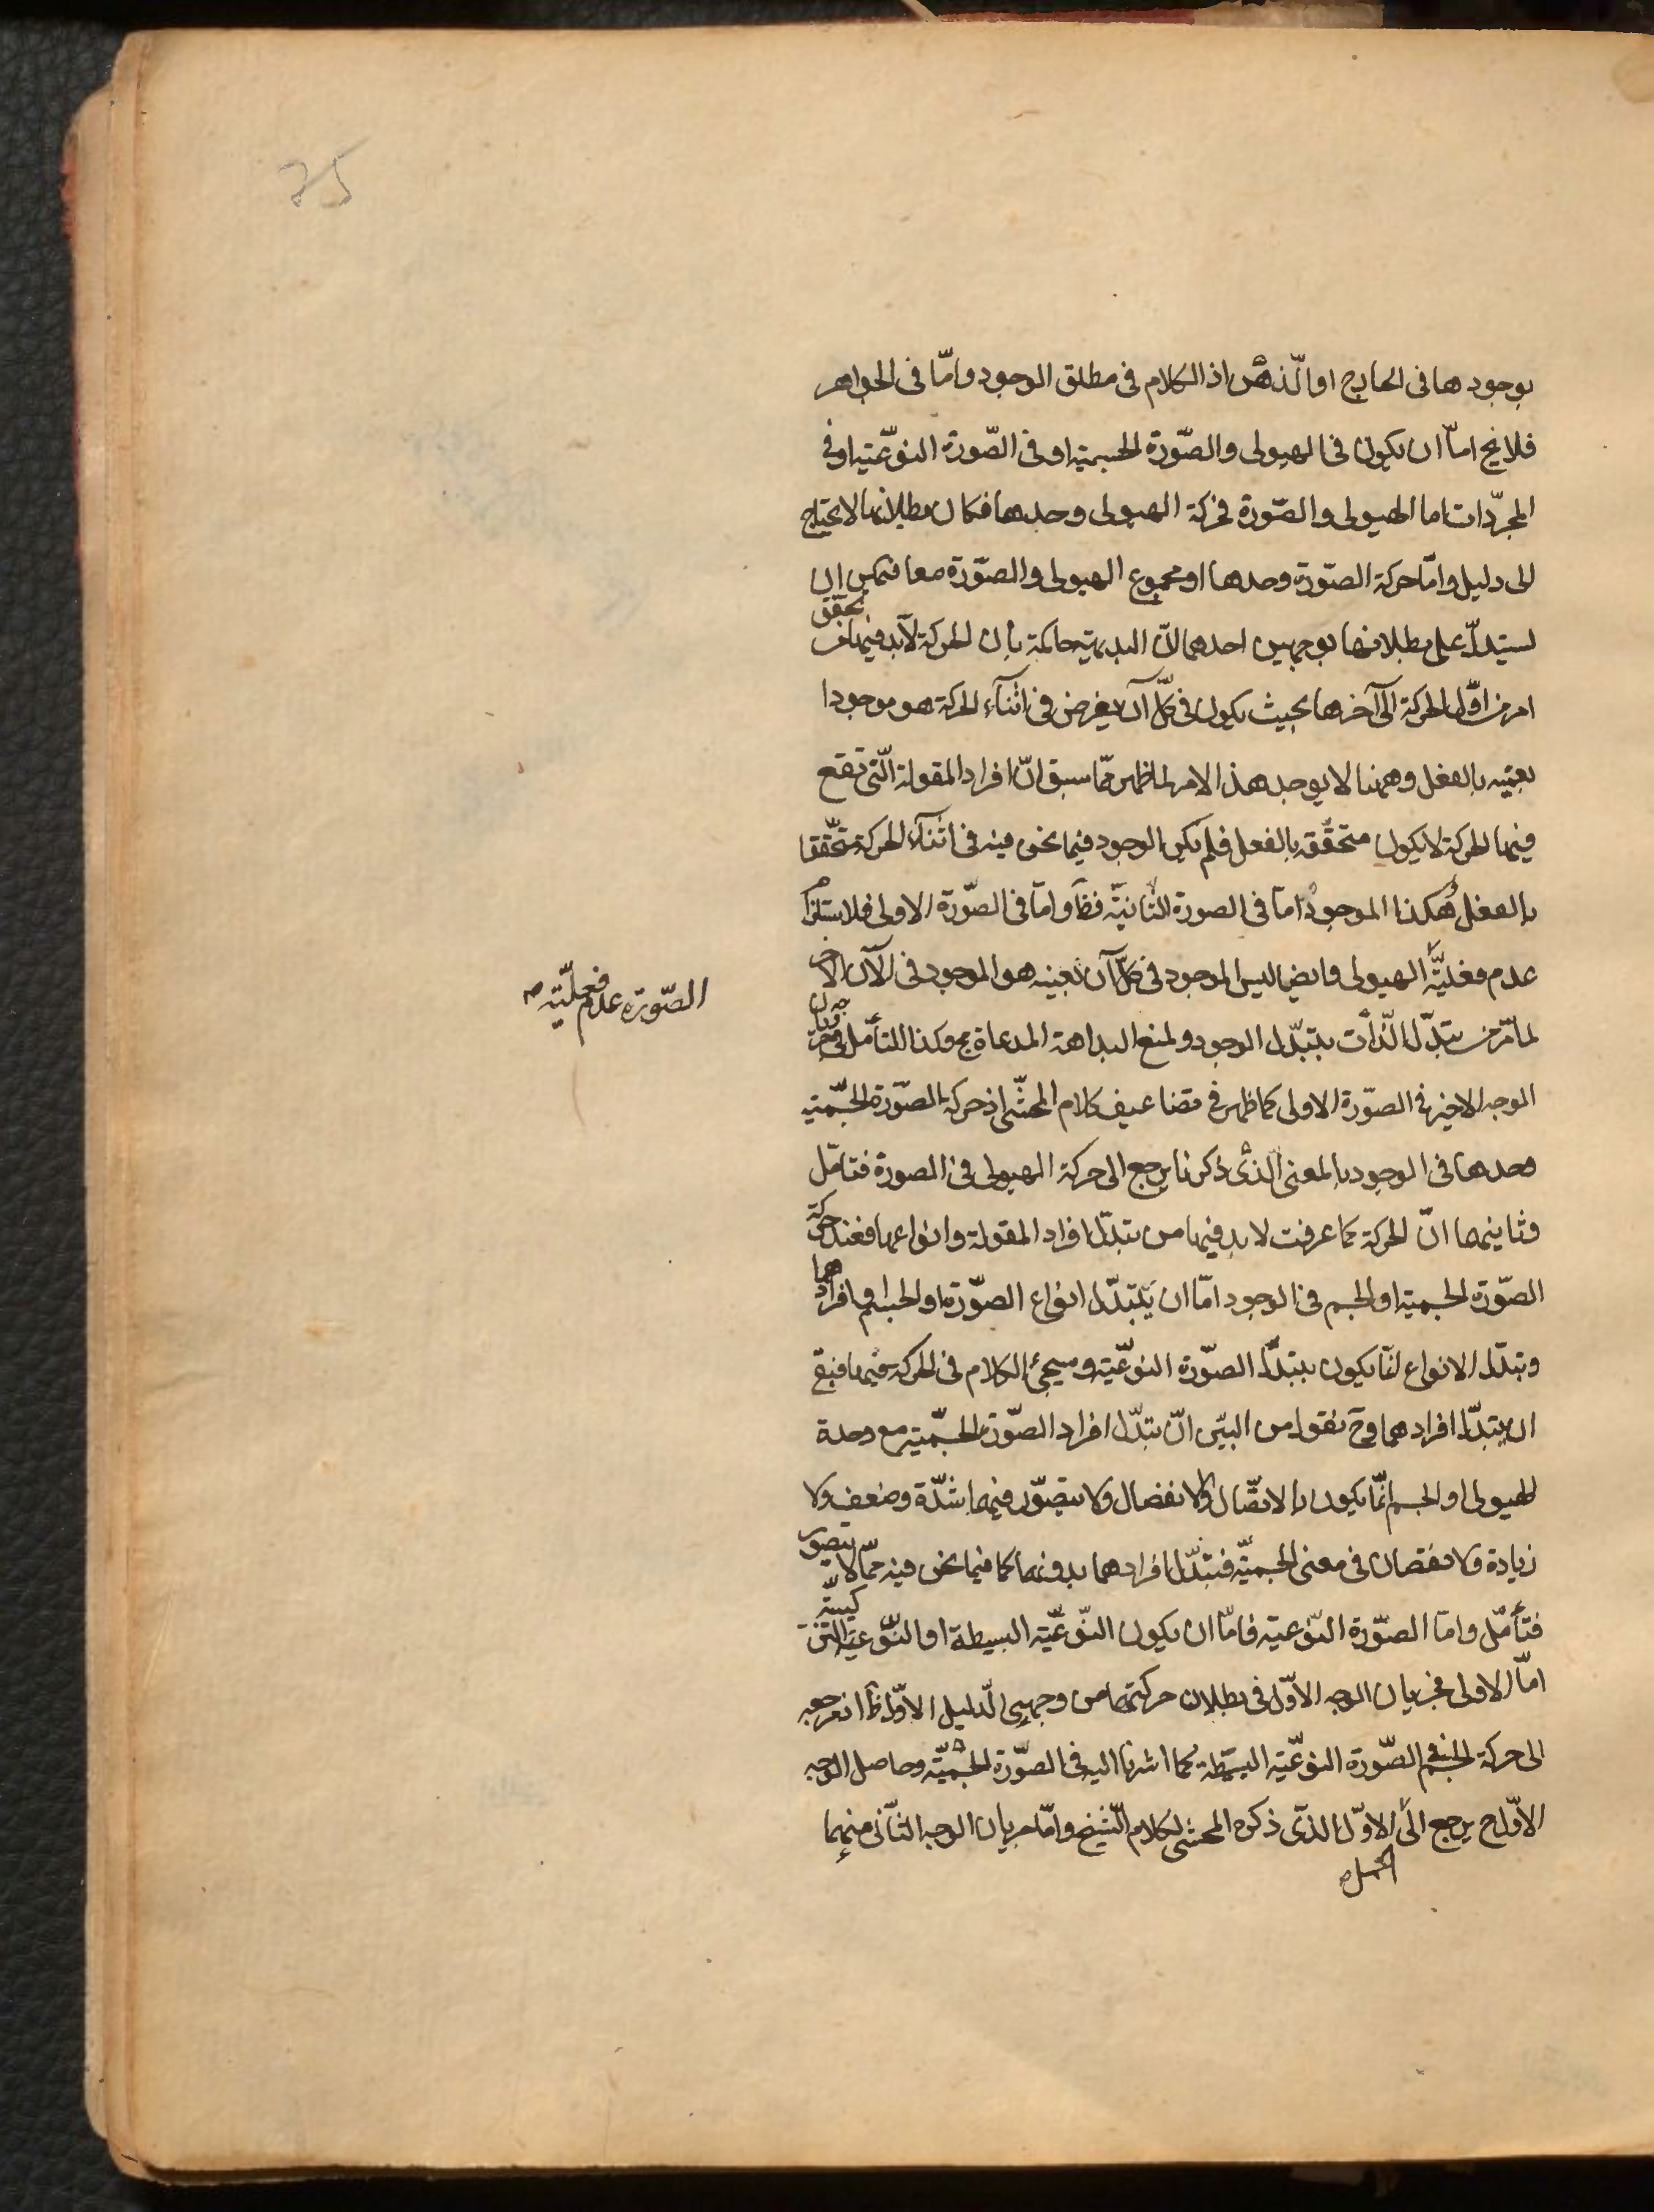 بوجودها فى الخارج او الّذهن اذ الكلام فى مطلق الوجود وامّا فى الجواهر
فلا يخ امّا ان يكون فى الهيولى والصّورة الجسمية او فى الصّورة النوّعيّة او فى
المجرّدات اما الهيولى والصّورة فحركة الهيولى وحدها فكان بطلانها لا يحتاج
الى دليل وامّا حركة الصّورة وحدها او مجموع الهيولى والصّورة معا فيمكن ان
يستدلّ على بطلانها بوجهين احدهما لانّ البديهية حاكمة بان الحركة لابد فيها من تحقق
امر من اوّل الحركة الى آخرها بحيث يكون فى كلّ آن يفرض فى اثنآء الحركة هو موجودا
بعينه بالفعل وههنا لا يوجد هذا الامر لما ظهر ممّا سبق انّ افراد المقولة الّتى تقع
فيها الحركة لا يكون متحقّقه بالفعل فلم يكن الوجود فيما نحن فيه فى اثنآء الحركة متحّققا
بالفعل فكذا الموجود امّا فى الصورة الثانيّة فظ وامّا فى الصّورة الاولى فلاستلزام
الصّورة عدم فعليّته
عدم فعليّة الهيولى وايضا ليس الموجود فى كلّ آن بعينه هو الموجود فى الآن الآخر
لما مّر من تبدّل الذّات بتبدّل الوجود ولمنع البداهة المدعاة مج وكذا للتأمّل فى جريان
الوجه الاخير فى الصّورة الاولى كما ظهر فى تضاعيف كلام المحشى اذ حركة الصّورة الجسّمية
وحدها فى الوجود بالمعنى الذى ذكرنا يرجع الى حركة الهيولى فى الصورة فتامّل
وثانيهما انّ الحركة كما عرفت لابد فيها من تبدّل افراد المقولة وانواعها فعند حركة
الصّورة الجسمية او الجسم فى الوجود امّا ان يتبدّل انواع الصّورة او الجسم او افرادهما
وتبدّل الانواع انمّا يكون بتبدّل الصّورة النوّعيّة وسيجئ الكلام فى الحركة فيها فبقى
ان يتبدّل افرادهما وح نقول من البيّن انّ تبدّل افراد الصّورة الجسّمية مع وحدة
الهيولى او الجسم انمّا يكون بالاتصّال والانفصال ولا يتصوّر فيها شدّة وضعف ولا
زيادة ولا نقصان فى معنى الجسميّة فتبدّل افرادهما بدونهما كما فيما نحن فيه ممّا لا يتصور
فتأمّل وامّا الصّورة النوّعية فامّا ان يكون النّوعيّة البسيطة او النوّعية التركيبيّة
امّا الاولى فجريان الوجه الاوّل فى بطلان حركتها من وجهى الّدليل الاوّل ظ اذ مرجعه
الى حركة الجسم فى الصّورة النوّعيّة البسيطة كما اشرنا اليه فى الصّورة الجسميّة وحاصل الوجه
الاوّل ح يرجع الى الاوّل الذى ذكره المحشى لكلام الشيخ وامّا جريان الوجه الثانى منهما